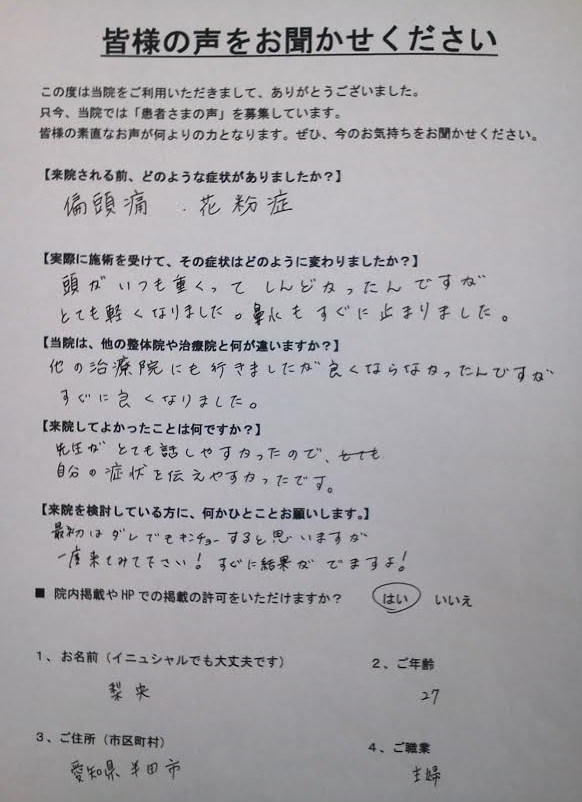 皆様の声をお聞かせください
この度は当院をご利用いただきまして、ありがとうございました。
只今、当院では「患者さまの声」を募集しています。
皆様の素直なお声が何よりの力となります。ぜひ、今のお気持ちをお聞かせください。
【来院される前、どのような症状がありましたか？】
偏頭痛 、花粉症
【実際に施術を受けて、その症状はどのように変わりましたか？】
頭がいつも重くって しんどかったんですが
とても軽くなりました。鼻水もすぐに止まりました。
【当院は、他の整体院や治療院と何が違いますか？】
他の治療院にも行きましたが良くならなかったんですが
すぐに良くなりました。
【来院してよかったことは何ですか？】
先生が とても話しやすかったので、とても
自分の症状を伝えやすかったです。
【来院を検討している方に、何かひとことお願いします。】
最初はダレでもキンチョーすると思いますが
一度来てみて下さい！すぐに結果が でますよ！
■ 院内掲載やHPでの掲載の許可をいただけますか？ はい いいえ
1、お名前（イニュシャルでも大丈夫です） 2、ご年齢
梨央 27
3、ご住所（市区町村） 4、ご職業
愛知県半田市 主婦